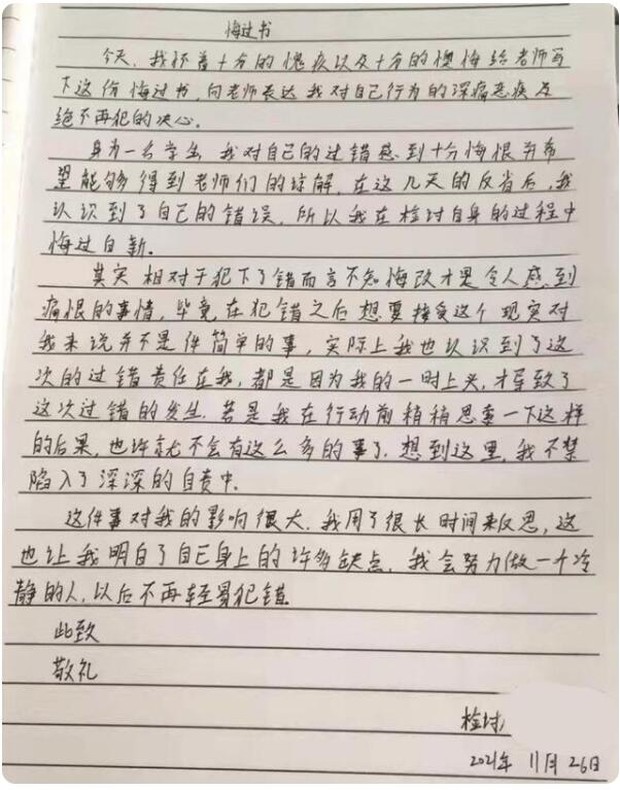 悔过书
今天,我怀着十分的愧疚以及十分的懊悔给老师写
下这份悔过书,向老师表达我对自己行为的深痛恶疾及
绝不再犯的决心。
身为一名学生,我对自己的过错感到十分悔恨并希
望能够得到老师们的谅解,在这几天的反省后,我
认识到了自己的错误,所以我在检讨自身的过程中
悔过自新。
其实相对于犯下了错而言不知悔改才是令人感到
痛恨的事情,毕竟在犯错之后想要接受这个现实对
我来说并不是件简单的事,实际上我也认识到了这
次的过错责任在我,都是因为我的一时上头,才导致了
这次过错的发生.若是我在行动前稍稍思索一下这样
的后果,也许就不会有这么多的事了.想到这里,我不禁
陷入了深深的自责中.
这件事对我的影响很大.我用了很长时间来反思,这
也让我明白了自己身上的许多缺点,我会努力做一个冷
静的人,以后不再轻易犯错.
此致
敬礼
检讨
2021年 11月 26日